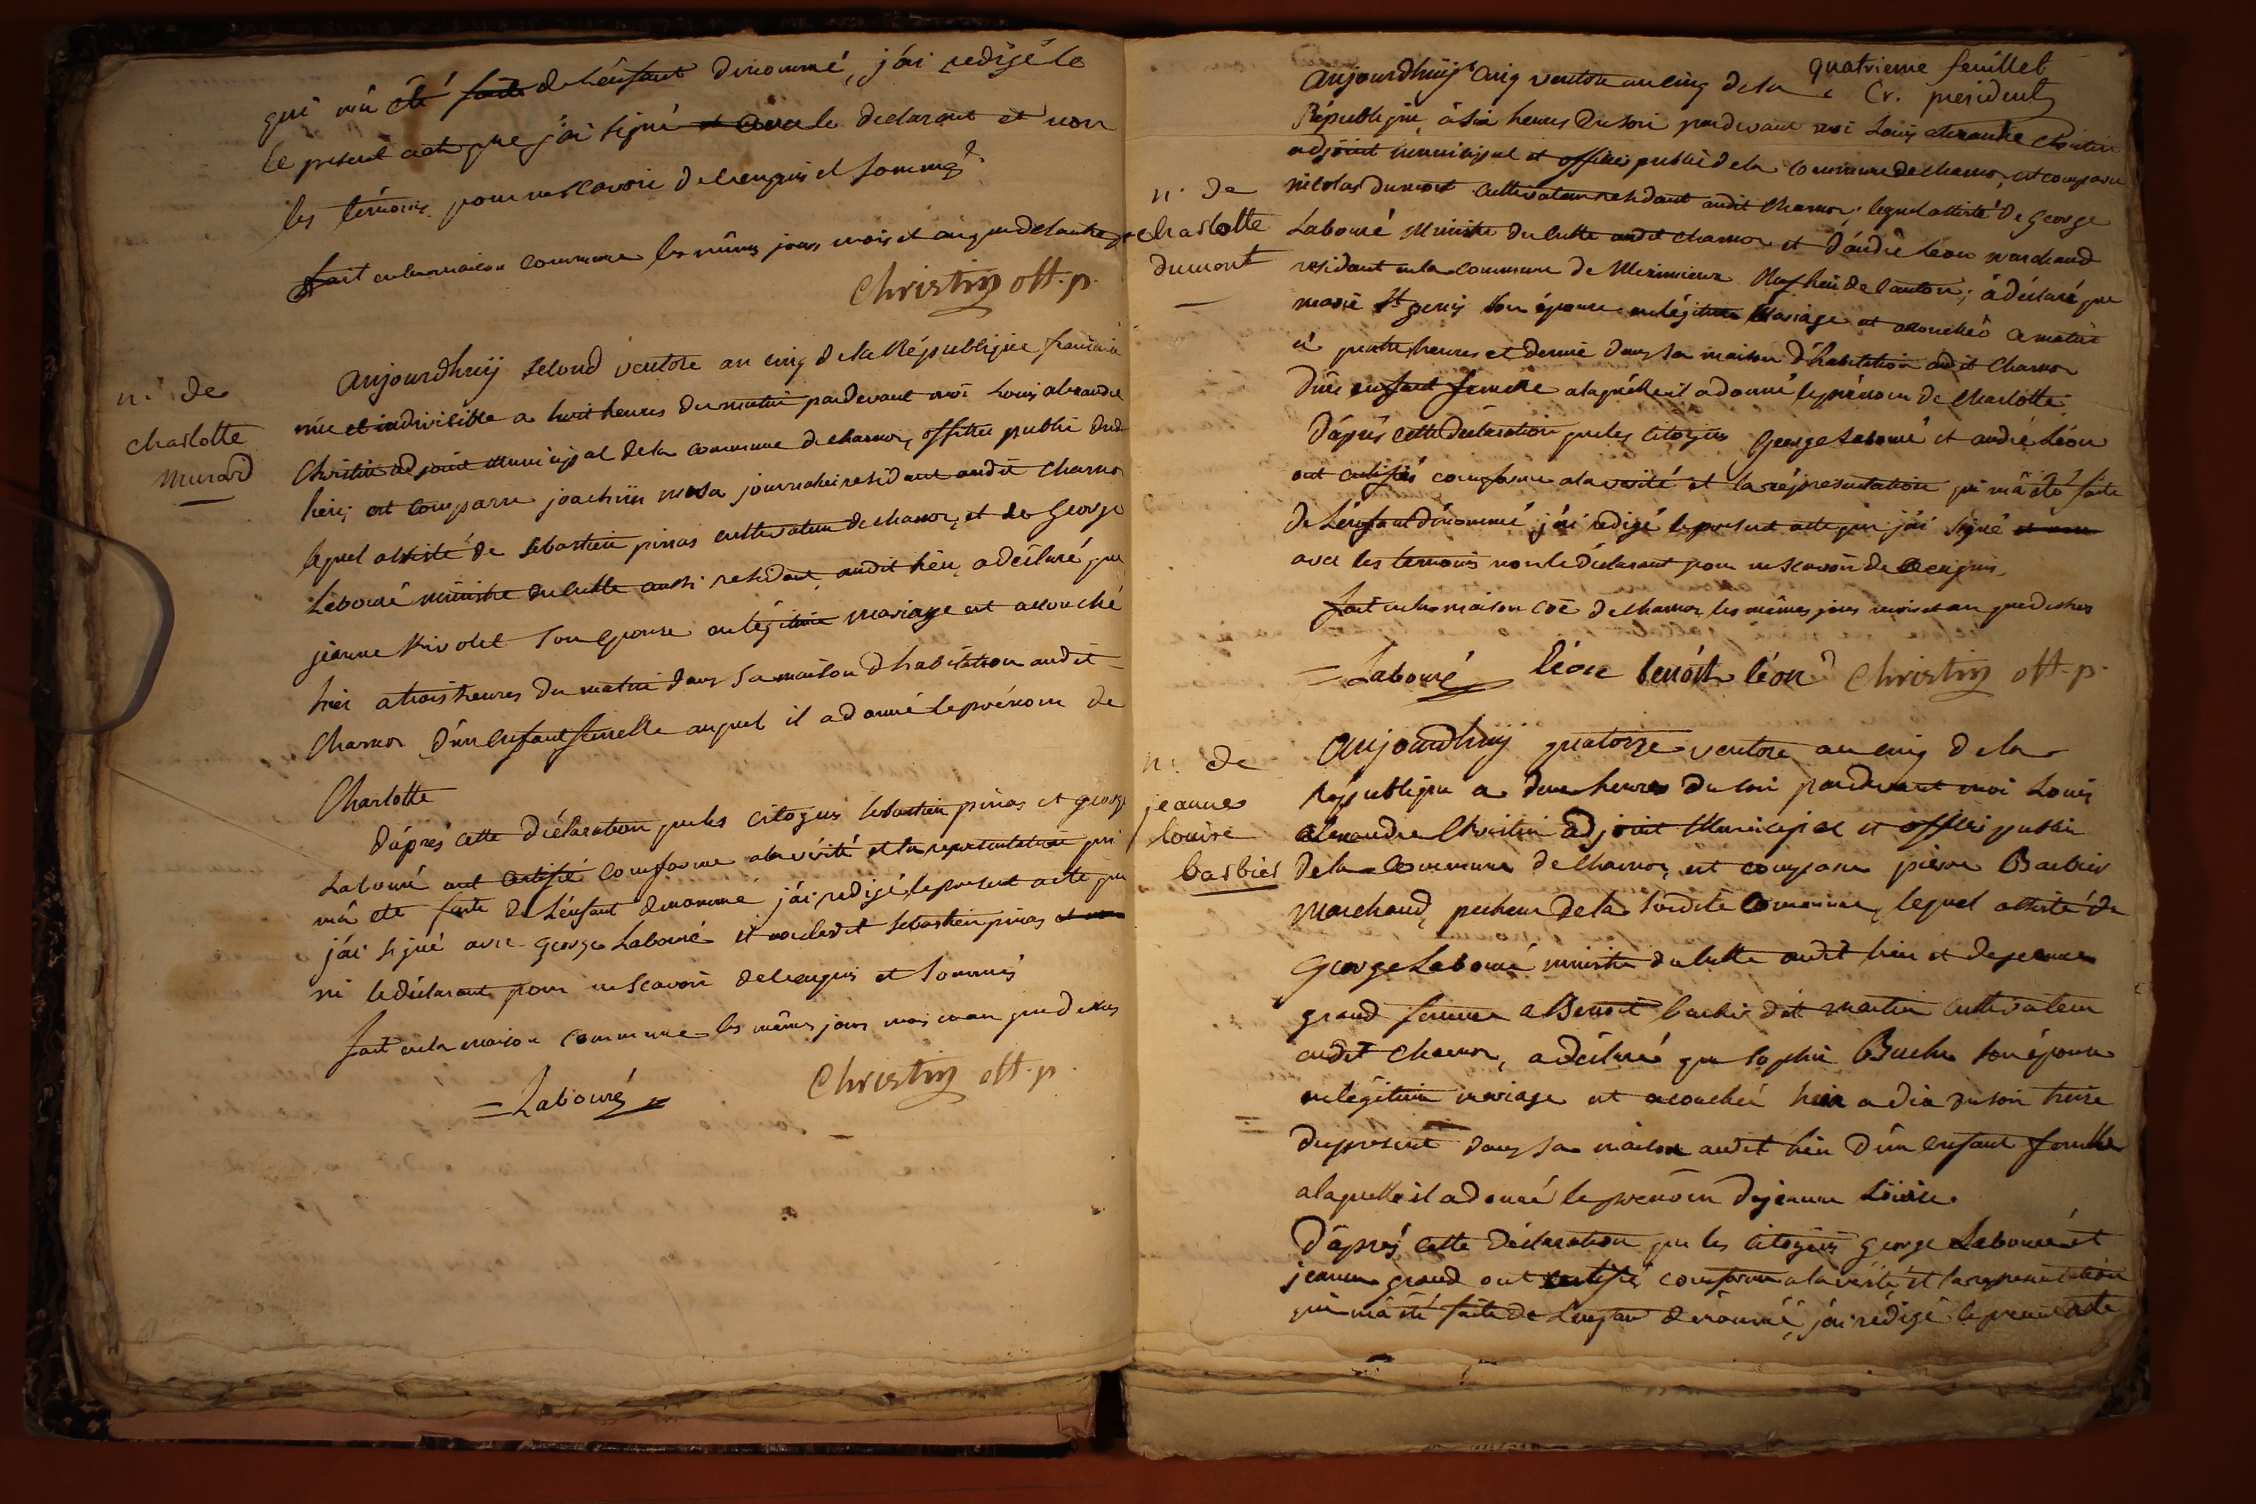 qui m'a été faite de l'énfant dénommé, j'ái redigé le
le présent acte que j'ai signé et avec le declarant et non
les témoins pour ne scavoir de ce enquis et sommés
fait en la maison commune les mêmes jours mois et an que de l'autre
Christin off. p.
n.ce de
charlotte
murard
Aujourdhuij second ventose an cinq de la République francaise
une et indivisible a huit heures du matin pardevant moi Louis alexandre
Christin adjoint Municipal de la commune de charnoz, officier public dudit
lieu; est comparu joachim journalier résidant audit charnoz
lequel assisté de sebastien pinas cultivateur de charnoz, et de George
Labouré ministre du culte aussi résidant audit lieu, a déclaré que
jeanne Rivolet son épouse en légitime mariage est accouché
hier a trois heures du matin dans sa maison d'habitation audit
Charnoz d'un Enfant femelle auquel il a donné le prénom de
Charlotte
D'áprés cette Déclaration que les citoyens sebastien pinas et george
Labouré ont certifié conforme a la vérité et la représentation qui
m'a été faite de L'énfant dénommé j'ái redigé le present acte que
j'ái signé avec George Labouré et non ledit sebastien pinas
ni le déclarant pour ne scavoir de ce enquis et sommés
fait en la maison commune les mêmes jours mois et an que dessus
Labouré
Christin off. p.
quatrieme feuillet
Cr. president
n.ce de
charlotte
dumont
Aujourdhuij cinq ventose an cinq de la
République, à six heures du soir pardevant moi Louis alexandre Christin
adjoint municipal et officier public de la commune de charnoz, est comparu
nicolas dumont cultivateur résidant audit charnoz; lequel assisté de George
Labouré Ministre du culte audit charnoz et d'ándré leon marchand
résidant en la commune de Meximieux chef lieu de canton; à déclaré que
marie St genis son épouse en légitime Mariage est accouchée ce matin
à quatre heures et demie dans sa maison d'habitation audit Charnoz
d'un enfant femelle a laquelle il a donné le prénom de Charlotte.
D'áprés cette déclaration que les citoyens George Labouré et andré Léon
ont certifiés conforme a la vérité et la réprésentation qui m'a été faite
de L'énfant dénommé j'ái redigé le présent acte que j'ái signé
avec les temoins non le déclarant pour ne scavoir de ce enquis.
fait en la maison coe de charnoz les mêmes jours mois et an que dessus
Labouré léon benóit léon Christin off. p.
n.ce de
jeanne
louise
barbier
Aujourdhuij quatorze ventose an cinq de la
République a deux heures du soir pardevant moi Louis
alexandre Christin adjoint Municipal et officier public
de la Commune de Charnoz, est comparu pierre Barbier
marchand pecheur de la susdite commune, lequel assisté de
George Labouré ministre du culte audit lieu et de jeanne
grand femme a Benoit barbier dit martin cultivateur
audit Charnoz, a déclaré que sophie Buche son épouse
en légitime mariage est accouchée hier a dix du soir treize
du présent dans sa maison audit lieu d'un enfant femelle
a laquelle il a donné le prénom de jeanne Louise.
D'áprés cette déclaration que les citoyens George Labouré et
jeanne grand ont certifié conforme a la vérité, et la représentation
qui m'a été faite de L'enfant dénommé, j'ai rédigé le présent acte